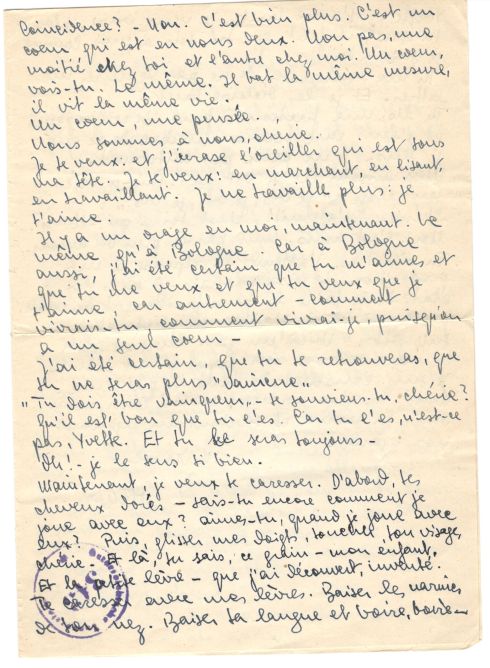 Coincidence? - Non. C'est bien plus. C'est un
coeur qui est en nous deux. Non pas, une
moitié chez toi et l'autre chez moi. Un coeur,
vois-tu. Le même. Il bat la même mesure,
il vit la même vie.
Un coeur, une pensée.
Nous sommes à nous, chérie.
Je te veux: et j'écrase l'oreiller qui est sous
ma tête. Je te veux: en marchant, en lisant,
en travaillant. Je ne travaille plus: je
t'aime.
Il y a un orage en moi, maintenant. Le
même qu'à Bologne. Car à Bologne
aussi, j'ai été certain que tu m'aimes et
que tu me veux et que tu veux que je
t'aime, car autrement - comment
vivrais-tu, comment vivrai-je, puisqu'on
a un seul coeur -
J'ai été certain, que tu te retrouveras, que
tu ne seras plus "vaincue".
"Tu dois être vainqueur" - te souviens-tu, chérie?
Qu'il est bon que tu l'es. Car tu l'es, n'est-ce
pas, Yvette. Et tu le seras toujours -
Oh! - je le sens si bien.
Maintenant, je veux te caresser. D'abord, tes
cheveux dorés - sais-tu encore comment je
joue avec eux? aimes-tu, quand je joue avec
eux? Puis, glisser mes doigts, toucher ton visage,
chérie. Et là, tu sais, ce grain - mon enfant.
Et la petite lèvre - que j'ai découvert, inventé.
Te caresser avec mes lèvres. Baiser les narines
de ton nez. Baiser ta langue et boire, boire -